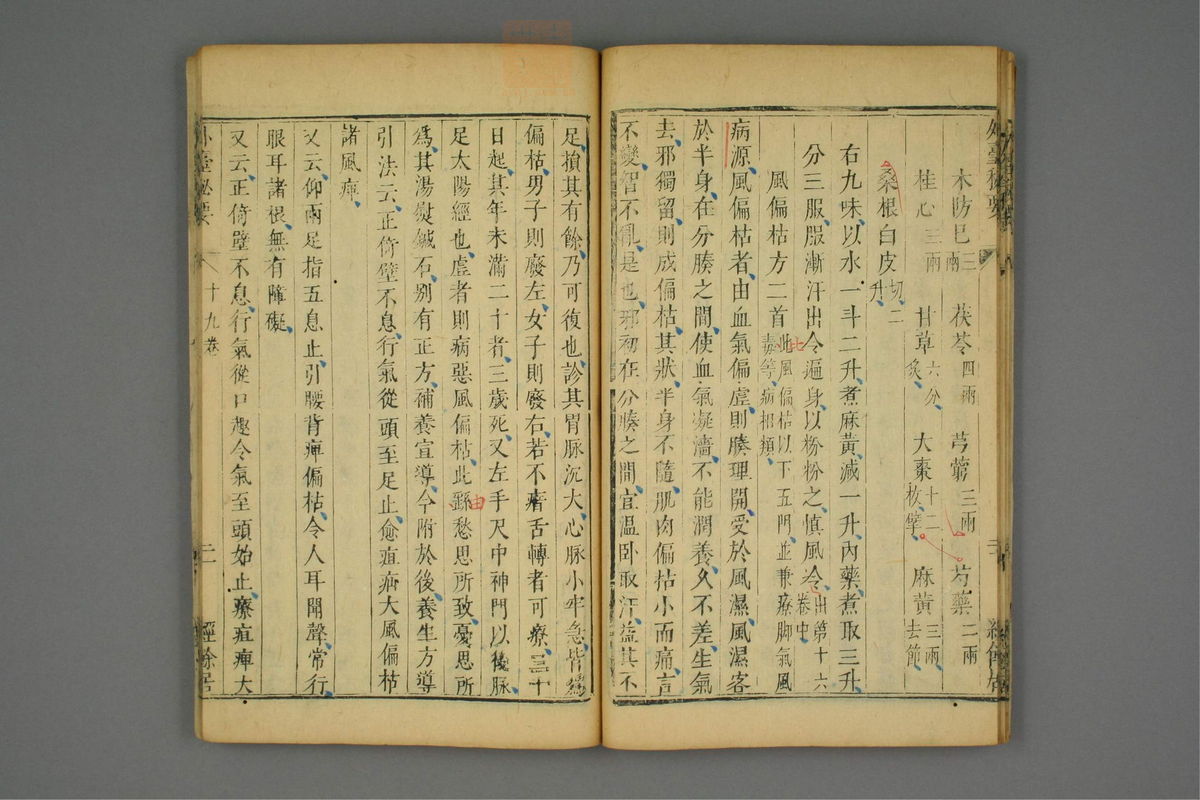 木防巳三兩 茯苓四兩 芎藭三兩 芍藥二兩
桂心三兩 甘草六分炙 大棗十二枚擘 麻黃三兩去節
桑根白皮切二升
右九味以水一斗二升煮麻黃減一升內藥煮取三升
分三服服漸汗出令遍身以粉粉之慎風冷出第十六卷中
風偏枯方二首此風偏枯以下五門並兼療脚氣風毒等病相類
病源風偏枯者由血氣偏虛則腠理開受於風濕風濕客
於半身在分腠之間使血氣凝濇不能潤養久不差生氣
去邪獨留則成偏枯其狀半身不隨肌肉偏枯小而痛言
不變智不亂是也邪初在分腠之間宜溫卧取汗益其不
足損其有餘乃可復也診其胃脉沉大心脉小牢急皆為
偏枯男子則廢左女子則廢右若不瘖舌轉者可療三十
日起其年未滿二十者三歲死又左手尺中神門以後脉
足太陽經也虛者則病惡風偏枯此繇愁思所致憂思所
為其湯熨鍼石别有正方補養宣導今附於後養生方導
引法云正倚壁不息行氣從頭至足止愈疽疝大風偏枯
諸風痺
又云仰兩足指五息止引腰背痺偏枯令人耳聞聲常行
眼耳諸根無有障礙
又云正倚壁不息行氣從口趣令氣至頭始止療疽痺大
外臺秘要 十九卷 三 經餘居